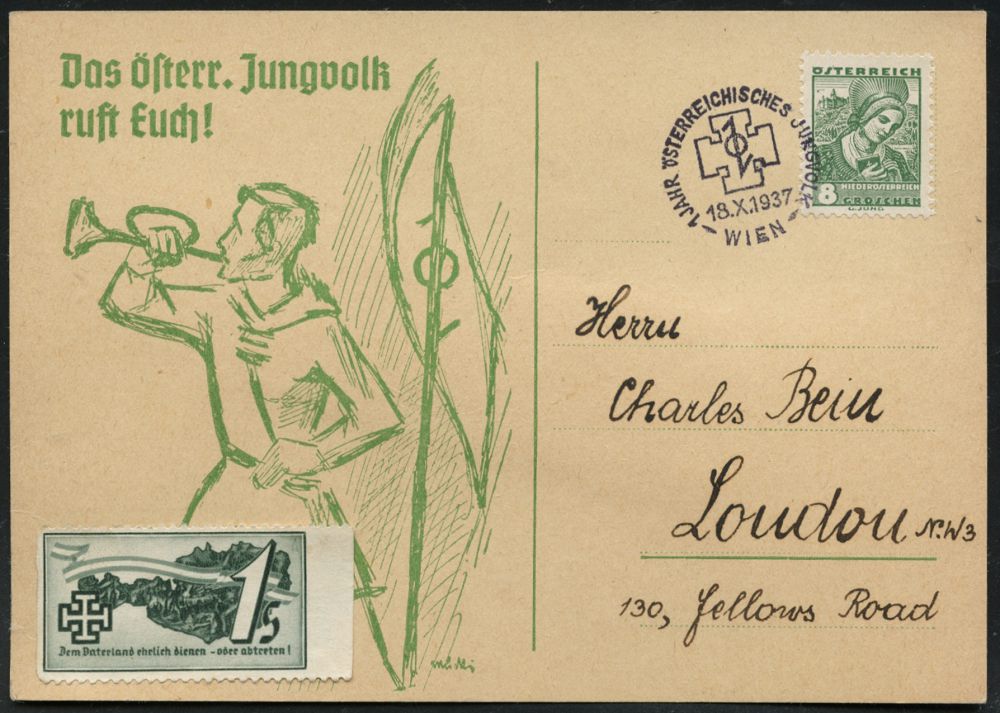 Das Österr. Jungvolk
ruft Euch!
1 JAHR ÖSTERREICHISCHES JUNGVOLK
18.X.1937
WIEN
ÖSTERREICH
8
NIEDERÖSTERREICH
GROSCHEN
G. JUNG
Herrn
Charles Bein
London N.W3
130, Fellows Road
1 S
Dem Vaterland ehrlich dienen - oder abtreten!